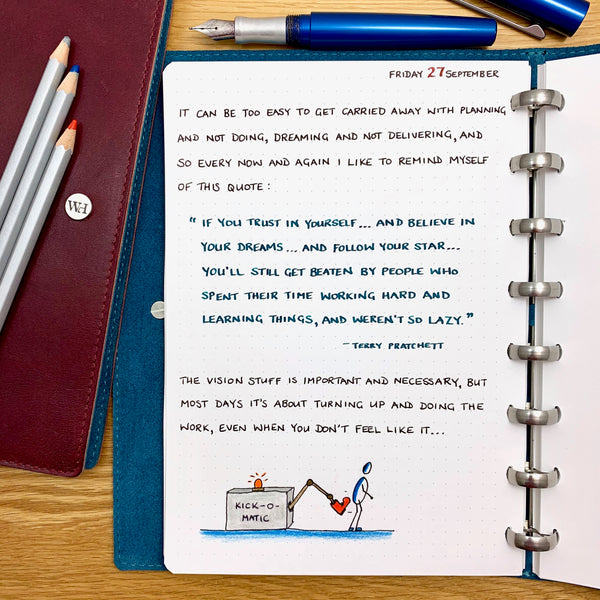 FRIDAY 27 SEPTEMBER
IT CAN BE TOO EASY TO GET CARRIED AWAY WITH PLANNING
AND NOT DOING, DREAMING AND NOT DELIVERING, AND
SO EVERY NOW AND AGAIN I LIKE TO REMIND MYSELF
OF THIS QUOTE:
"IF YOU TRUST IN YOURSELF... AND BELIEVE IN
YOUR DREAMS... AND FOLLOW YOUR STAR...
YOU'LL STILL GET BEATEN BY PEOPLE WHO
SPENT THEIR TIME WORKING HARD AND
LEARNING THINGS, AND WEREN'T SO LAZY."
- TERRY PRATCHETT
THE VISION STUFF IS IMPORTANT AND NECESSARY, BUT
MOST DAYS IT'S ABOUT TURNING UP AND DOING THE
WORK, EVEN WHEN YOU DON'T FEEL LIKE IT...
KICK-O-
MATIC